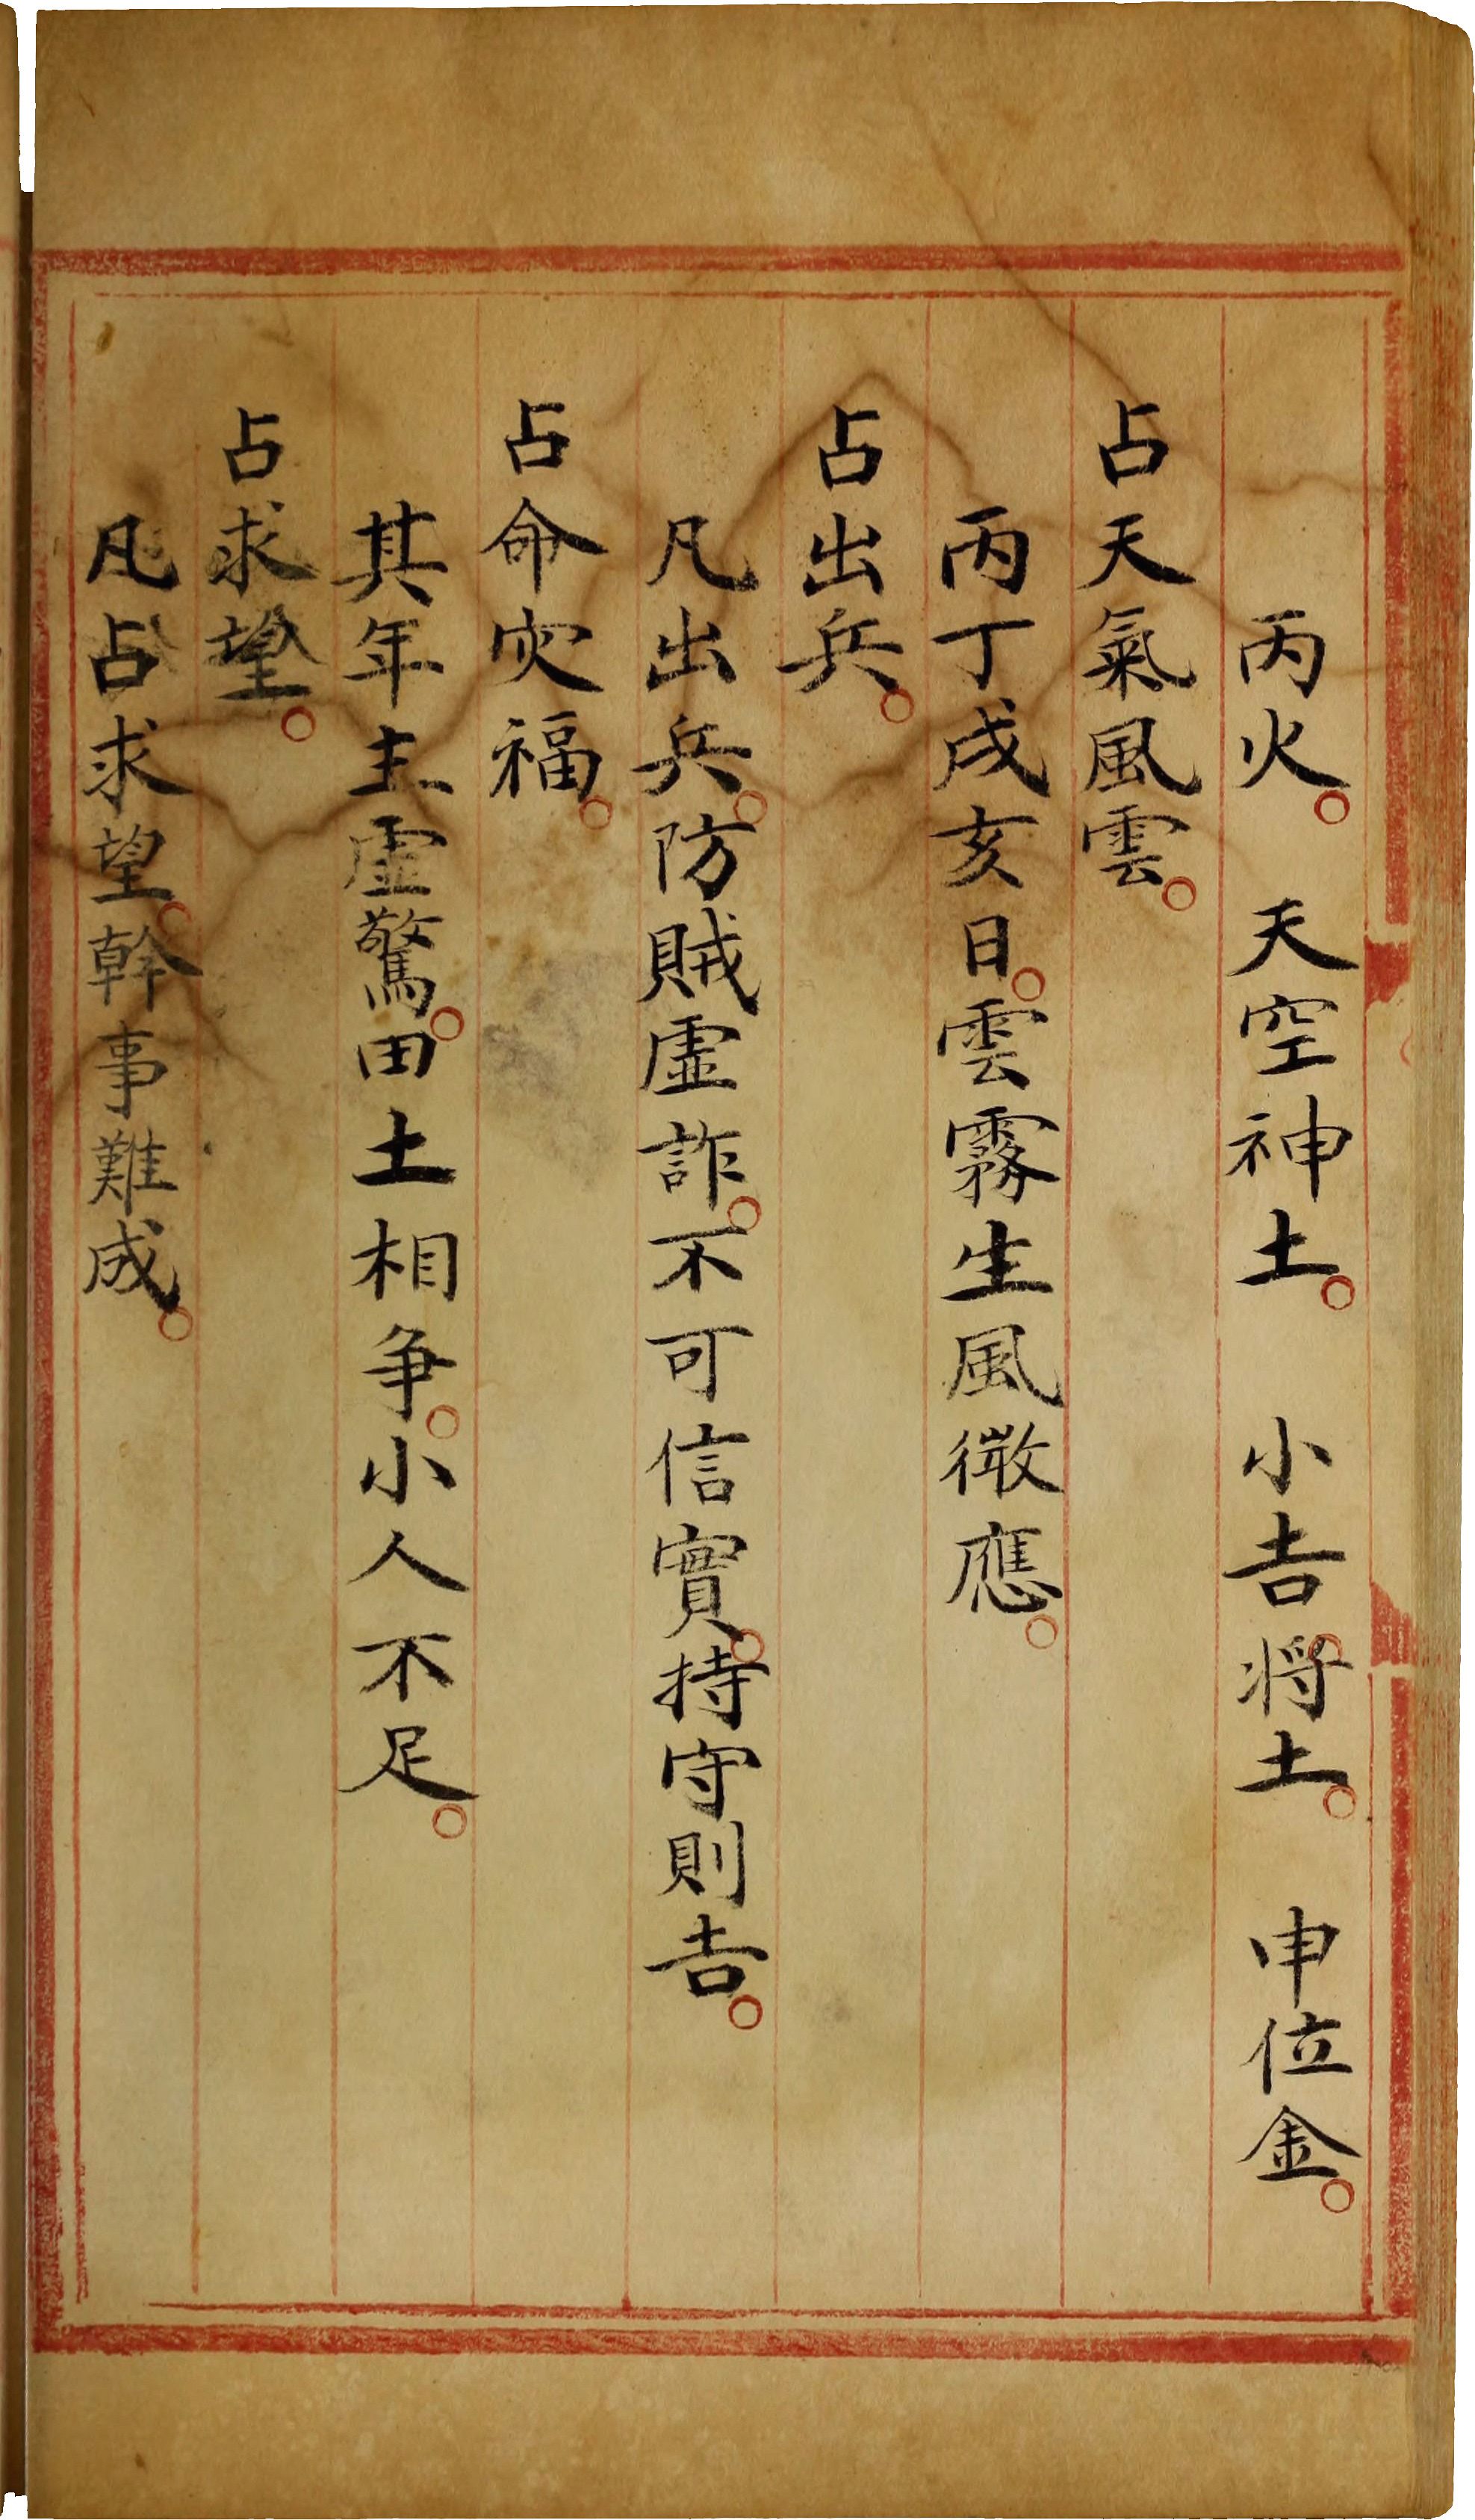 丙火。　天空神土。　小吉。将土。　申位金。
占天氣風雲。
丙丁戌亥日。雲霧生風徵應。
占出兵。
凡出兵。防賊虛詐。不可信實。持守則吉。
占命灾福。
其年主虛驚。田土相争。小人不足。
占求望。
凡占求望。幹事難成。